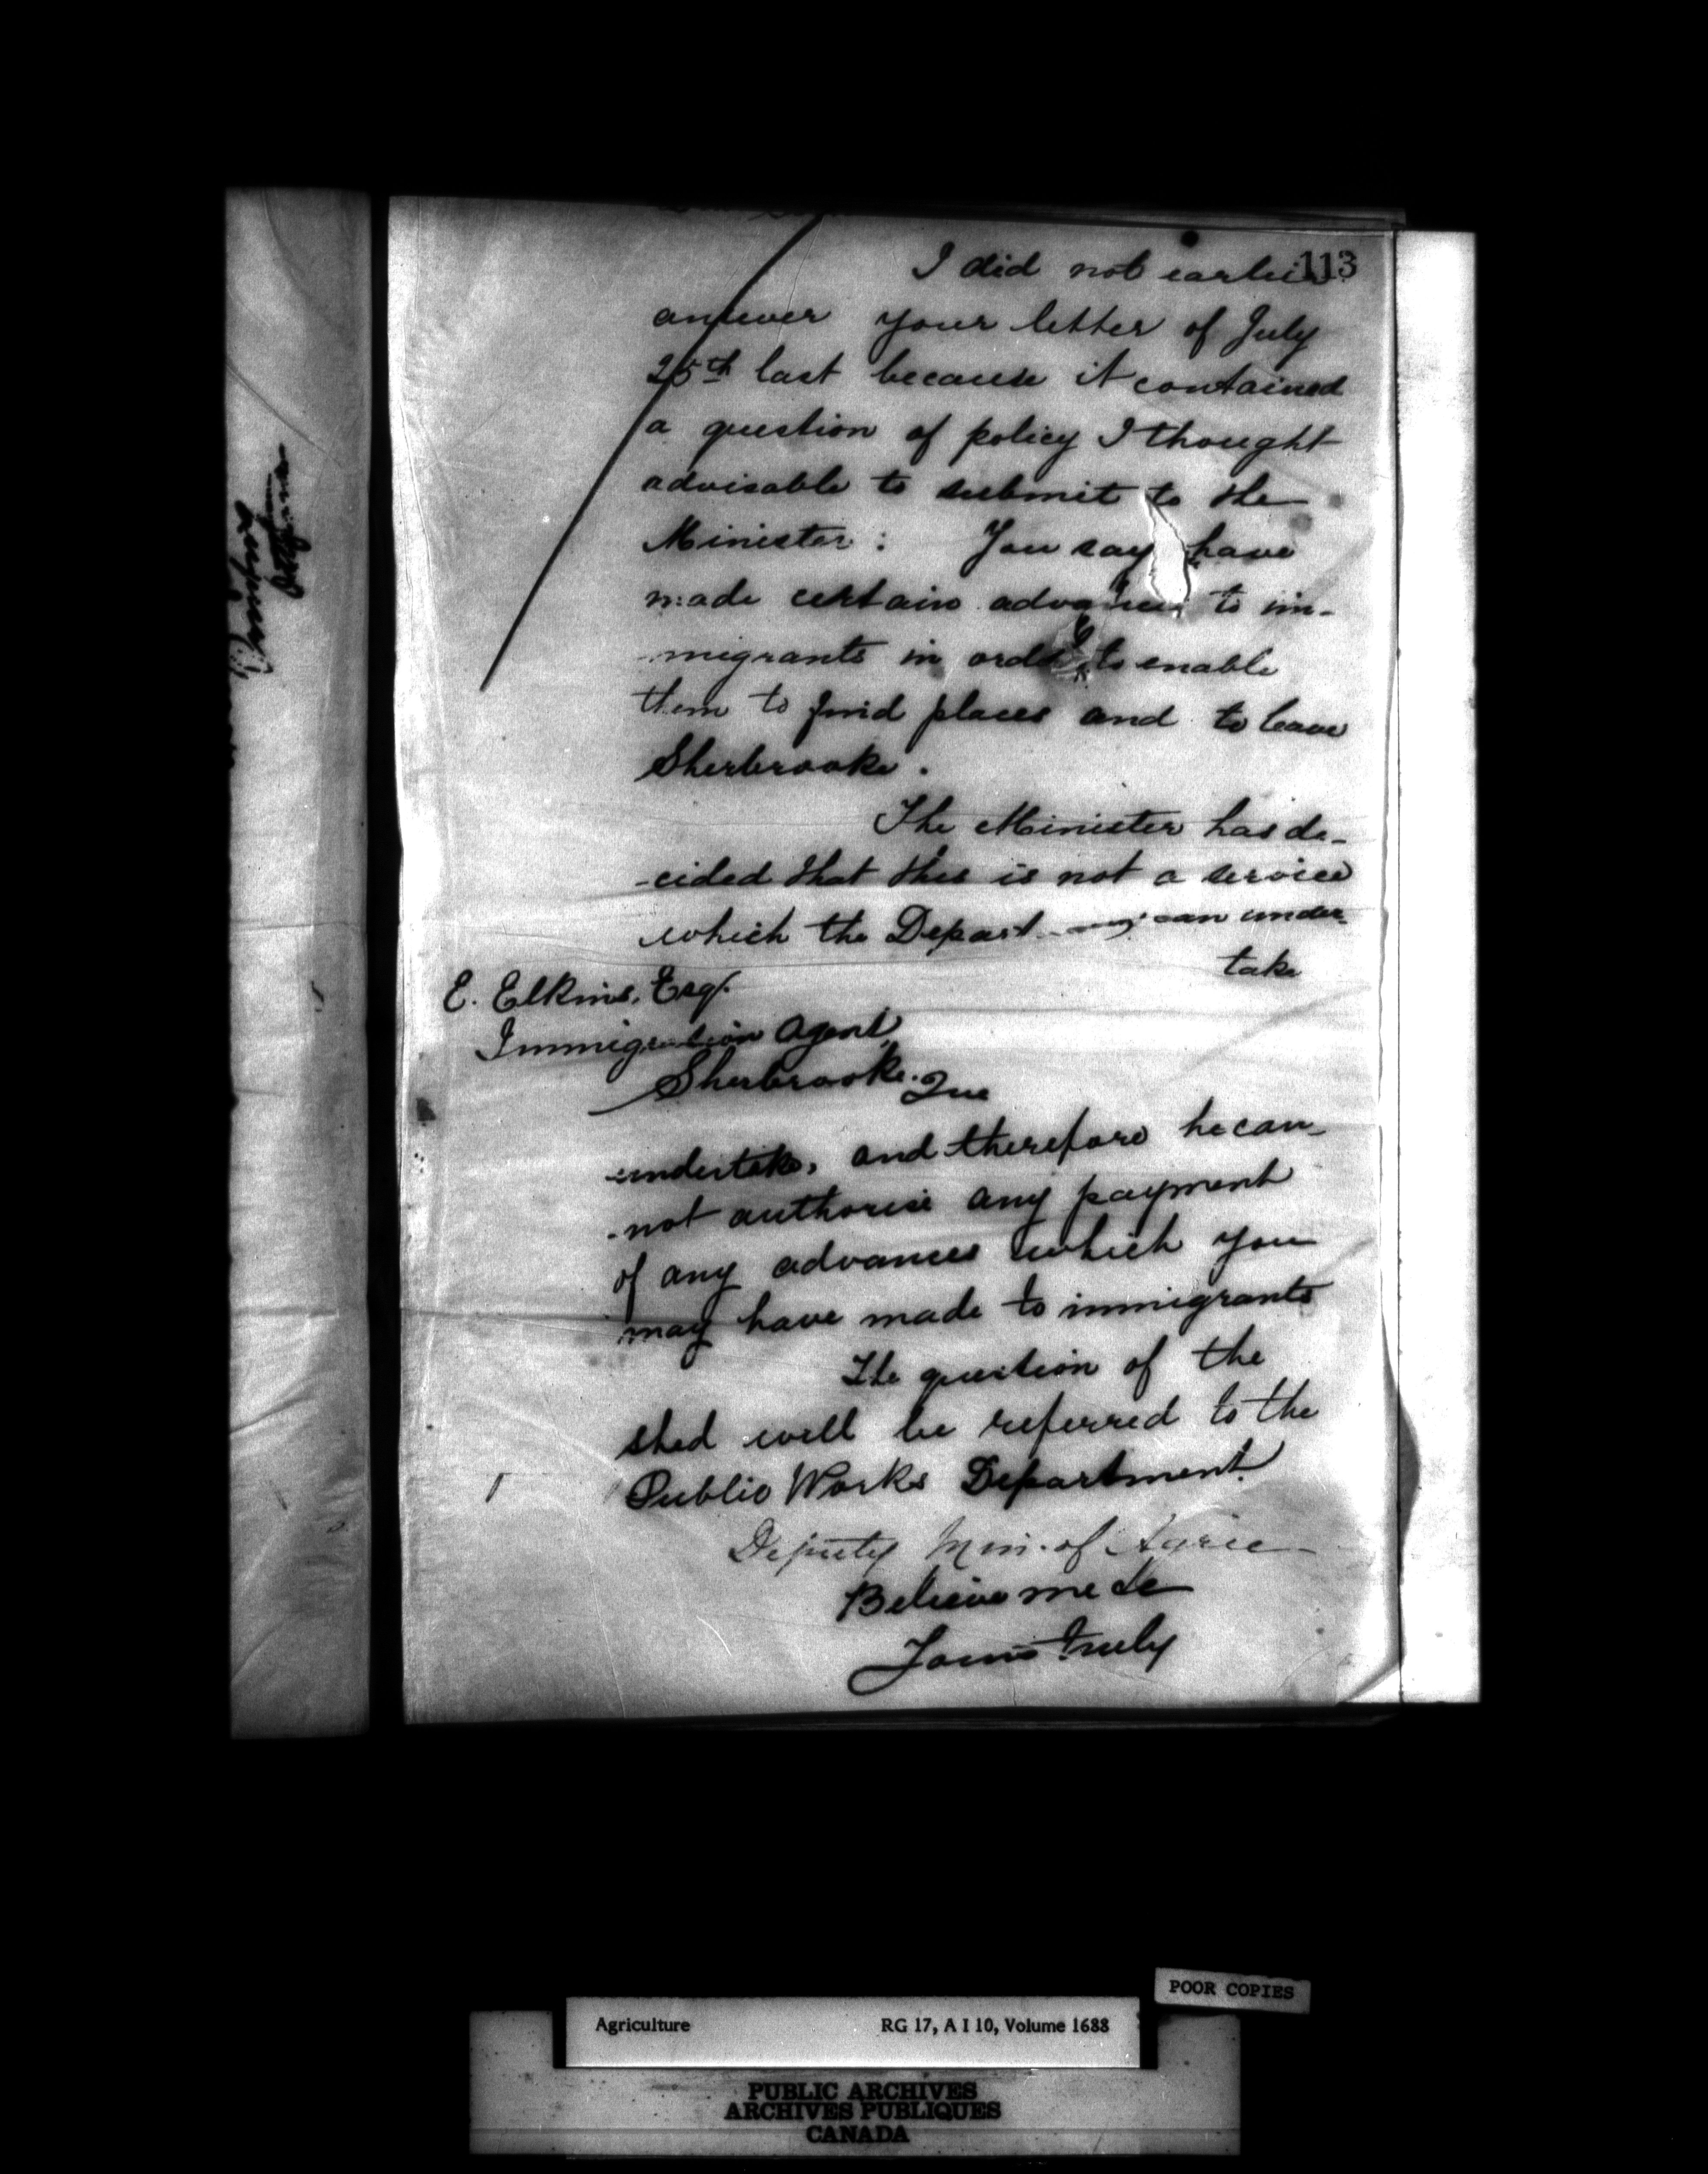 113
I did not earlier
answer your letter of July
25th last because it contained
a question of policy I thought
advisable to submit to the
Minister: You say have
made certain advances to im-
-migrants in order to enable
them to find places and to leave
Sherbrooke.
The Minister has de-
-cided that this is not a service
which the Depart can under-
take
E. Elkins, Esq.
Immigration Agent,
Sherbrooke. Que
undertake, and therefore he can-
-not authorise any payment
of any advances which you
may have made to immigrants
The question of the
shed will be referred to the
Public Works Department.
Deputy Min. of Agric
Believe me de
Yours truly
POOR COPIES
Agriculture RG 17, A I 10, Volume 1688
PUBLIC ARCHIVES
ARCHIVES PUBLIQUES
CANADA